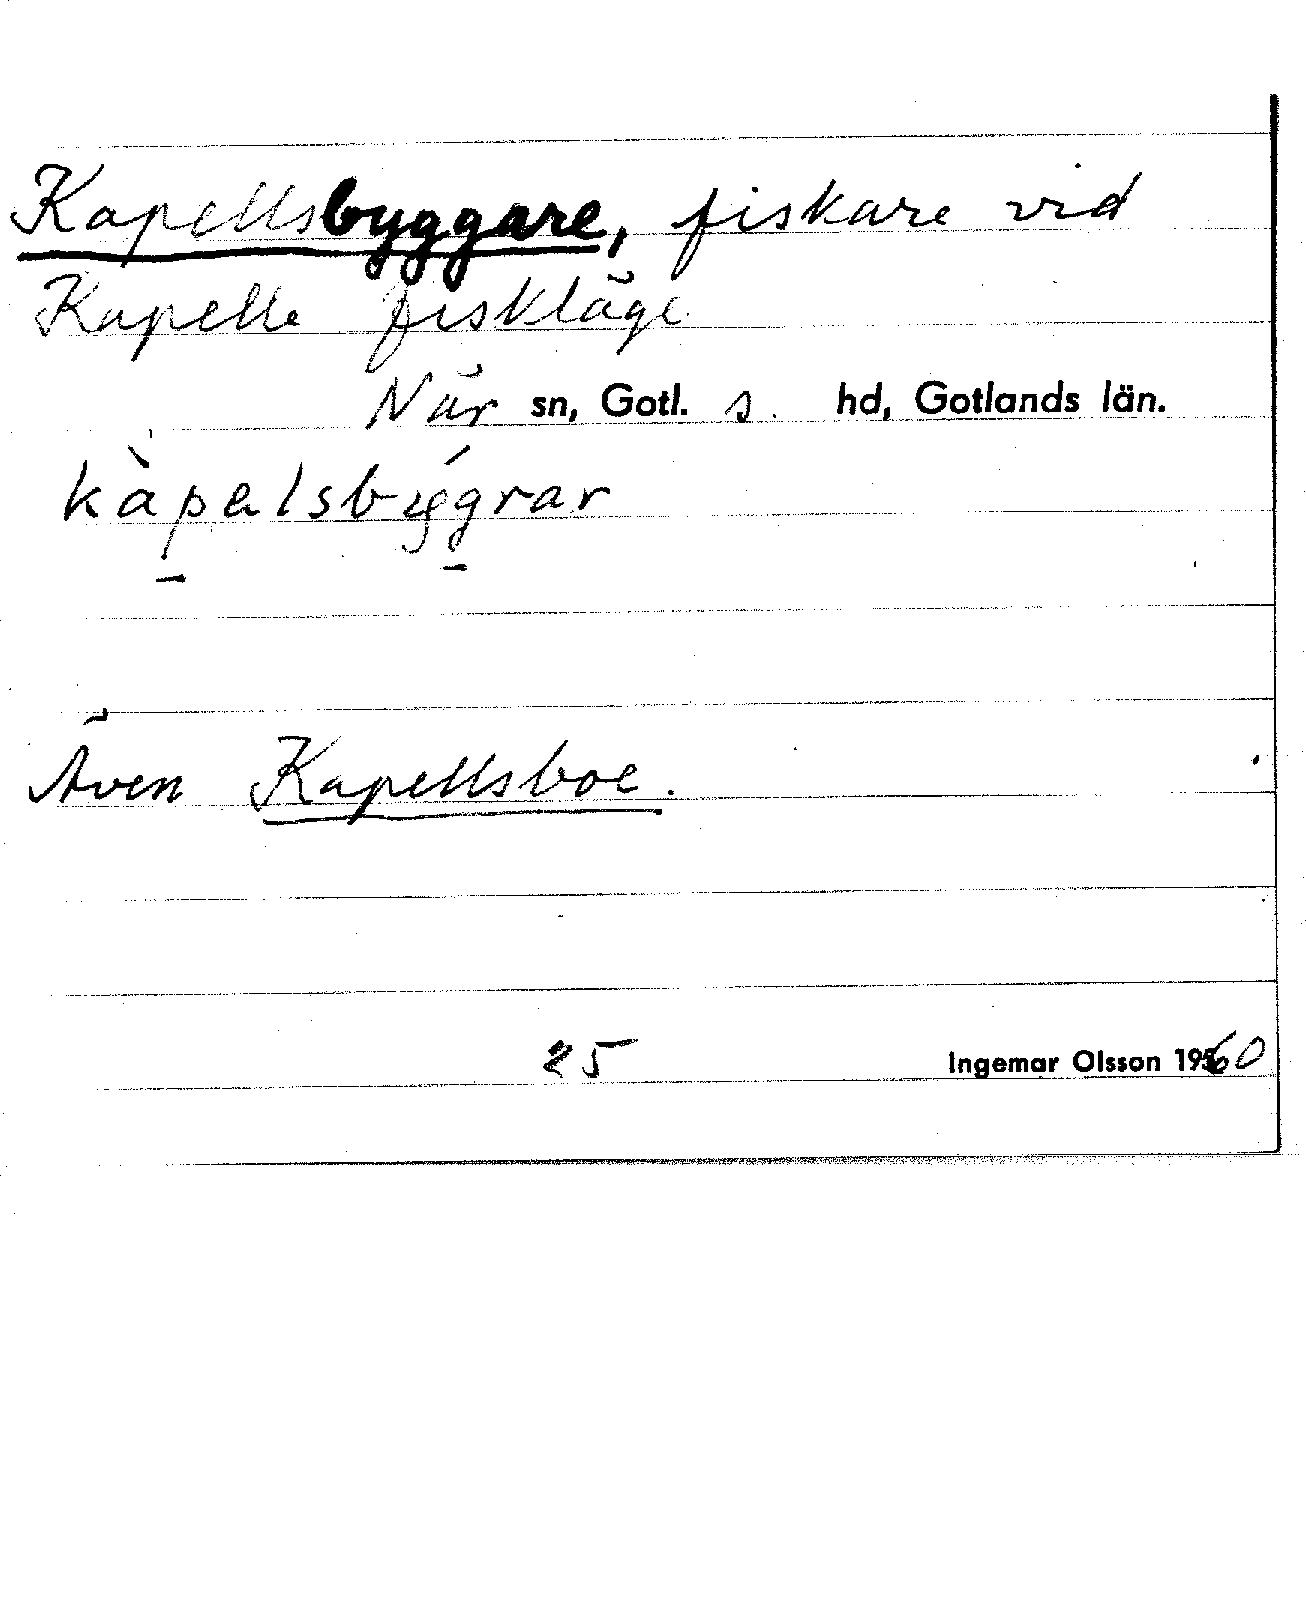 Kapellsbyggare, fiskare vid
Kapelle fiskläge
När sn, Gotl. s. hd, Gotlands län.
kàpalsbýgrar
Även Kapellsboe.
25 Ingemar Olsson 1960